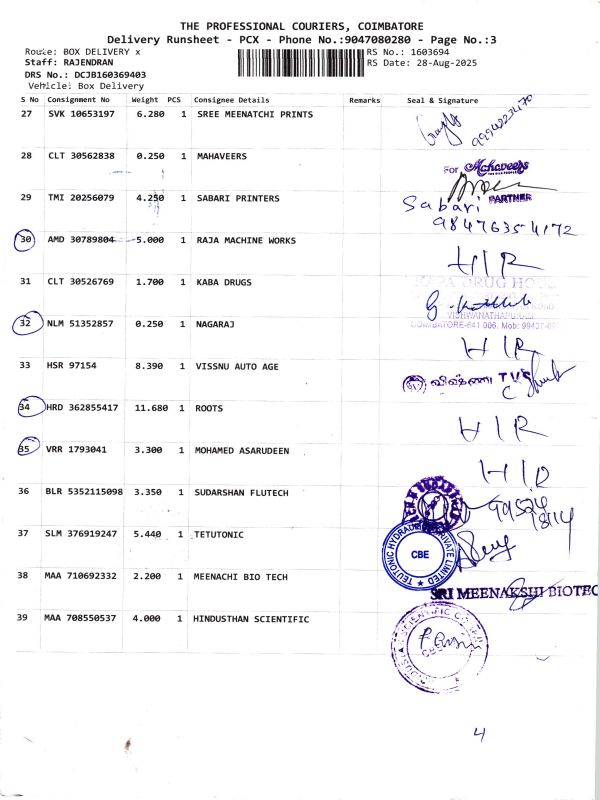 THE PROFESSIONAL COURIERS, COIMBATORE
Delivery Runsheet - PCX - Phone No.:9047080280 - Page No.:3
Route: BOX DELIVERY x RS No.: 1603694
Staff: RAJENDRAN RS Date: 28-Aug-2025
DRS No.: DCJB160369403
Vehicle: Box Delivery
S No Consignment No Weight PCS Consignee Details Remarks Seal & Signature
27 SVK 10653197 6.280 1 SREE MEENATCHI PRINTS
28 CLT 30562838 0.250 1 MAHAVEERS
For Mahaveers
PARTNER
29 TMI 20256079 4.250 1 SABARI PRINTERS Sabari
30 AMD 30789804 5.000 1 RAJA MACHINE WORKS
31 CLT 30526769 1.700 1 KABA DRUGS
KABA DRUG HOUS
32 NLM 51352857 0.250 1 NAGARAJ
COIMBATORE-641 006. Mob: 99437-
33 HSR 97154 8.390 1 VISSNU AUTO AGE
விஷ்ணு TVS
34 HRD 362855417 11.680 1 ROOTS
35 VRR 1793041 3.300 1 MOHAMED ASARUDEEN
36 BLR 5352115098 3.350 1 SUDARSHAN FLUTECH
37 SLM 376919247 5.440 1 TETUTONIC
TEUTONIC HYDRAU PRIVATE LIMITED
CBE
38 MAA 710692332 2.200 1 MEENACHI BIO TECH
SRI MEENAKSHI BIOTEC
39 MAA 708550537 4.000 1 HINDUSTHAN SCIENTIFIC
4